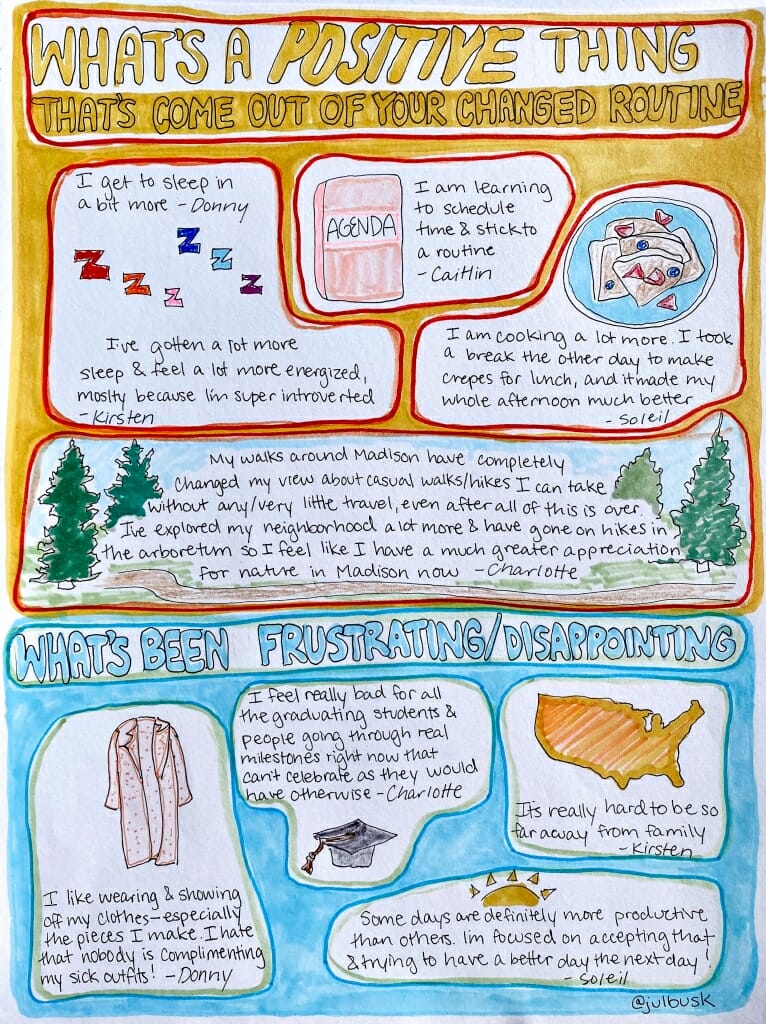 WHAT'S A POSITIVE THING
THAT'S COME OUT OF YOUR CHANGED ROUTINE
I get to sleep in
a bit more - Donny
Z Z Z Z Z Z
I've gotten a lot more
sleep & feel a lot more energized,
mostly because I'm super introverted
- Kirsten
AGENDA
I am learning
to schedule
time & stick to
a routine
- Caitlin
I am cooking a lot more. I took
a break the other day to make
crepes for lunch, and it made my
whole afternoon much better
- Soleil
My walks around Madison have completely
changed my view about casual walks/hikes I can take
without any/very little travel, even after all of this is over.
I've explored my neighborhood a lot more & have gone on hikes in
the arboretum so I feel like I have a much greater appreciation
for nature in Madison now - Charlotte
WHAT'S BEEN FRUSTRATING/DISAPPOINTING
I like wearing & showing
off my clothes—especially
the pieces I make. I hate
that nobody is complimenting
my sick outfits! - Donny
I feel really bad for all
the graduating students &
people going through real
milestones right now that
can't celebrate as they would
have otherwise - Charlotte
It's really hard to be so
far away from family
- Kirsten
Some days are definitely more productive
than others. I'm focused on accepting that
& trying to have a better day the next day!
- Soleil
@julbusk